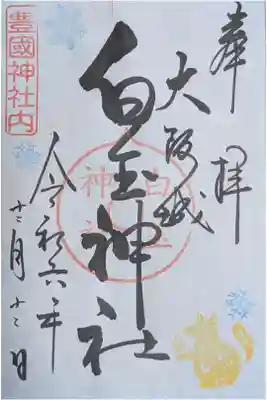 奉拝
大阪城
白玉神社
白玉神社
豊國神社内
令和六年
十二月十二日